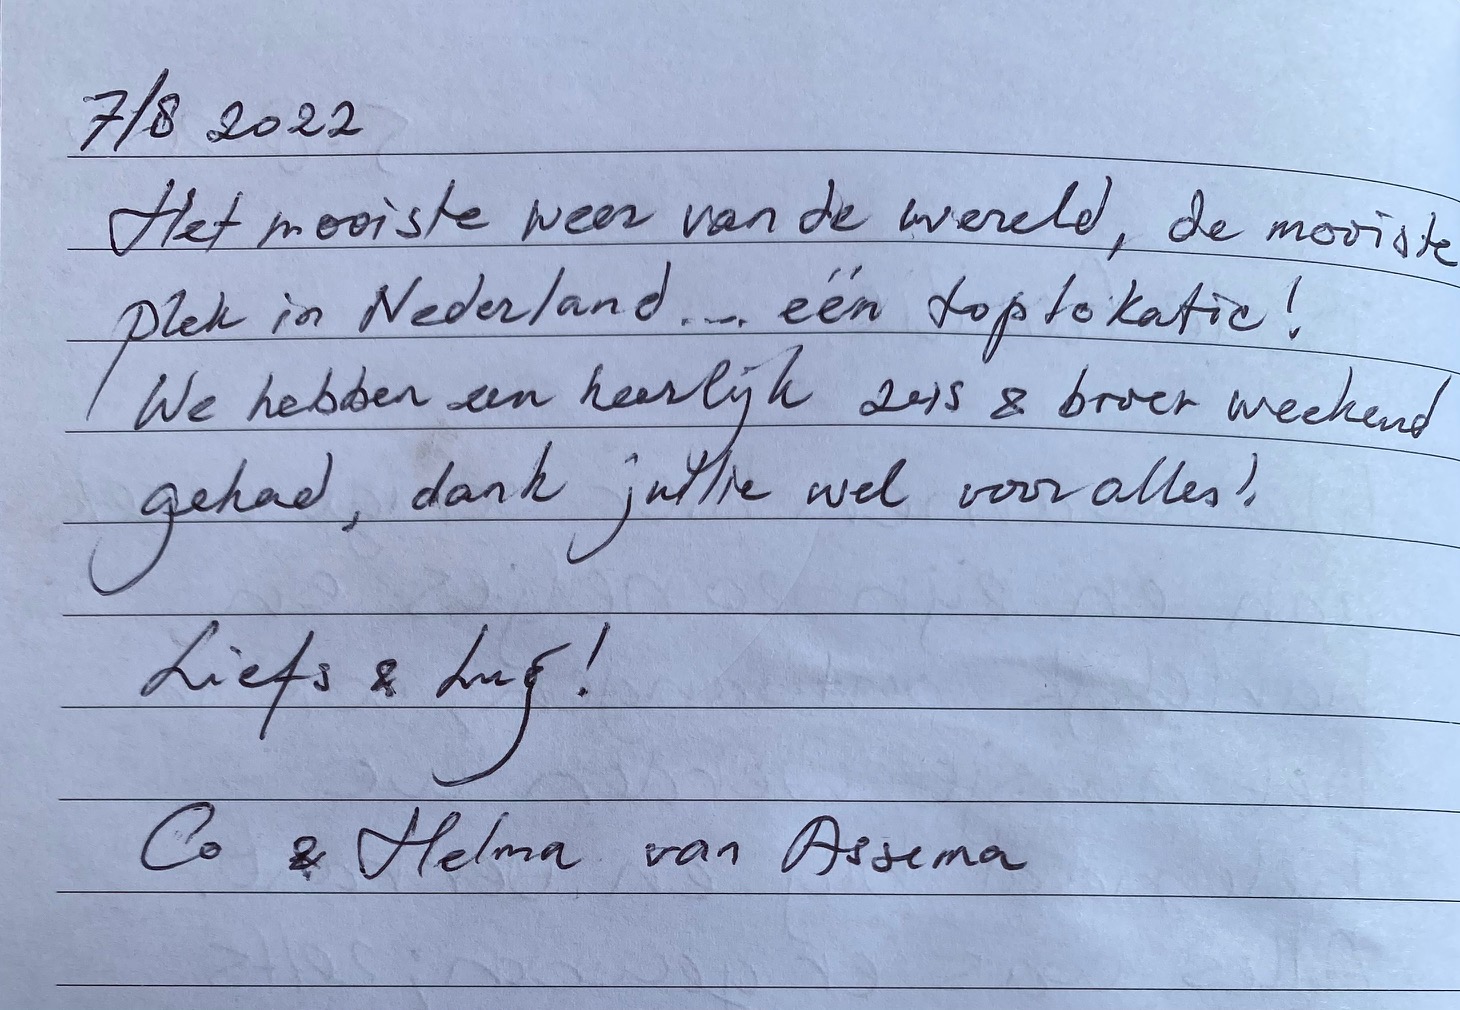 7/8 2022
Het mooiste weer van de wereld, de mooiste
plek in Nederland.... één toplokatie!
We hebben een heerlijk zus & broer weekend
gehad, dank jullie wel voor alles!
Liefs & Lug!
Co & Helma van Assema